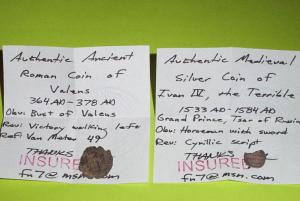 Authentic Ancient
Roman Coin of
Valens
364 AD - 378 AD
Obv: Bust of Valens
Rev: Victory walking left
Ref: Van Meter 49
THANKS
INSURED
fn7@msn.com
Authentic Medieval
Silver Coin of
Ivan IV, the Terrible
1533 AD - 1584 AD
Grand Prince, Tsar of Russia
Obv: Horseman with sword
Rev: Cyrillic script
THANKS
INSURED
fn7@msn.com